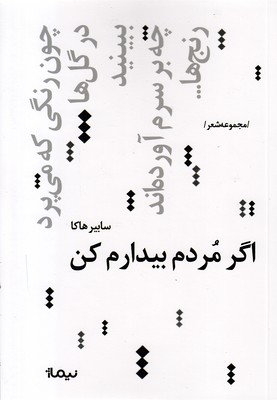 چون رنگی که می‌پرد
در گل‌ها
ببینید
چه بر سرم آورده‌اند
رنج‌ها...
/مجموعه‌شعر/
سابیر هاکا
اگر مُردم بیدارم کن
نیماژ